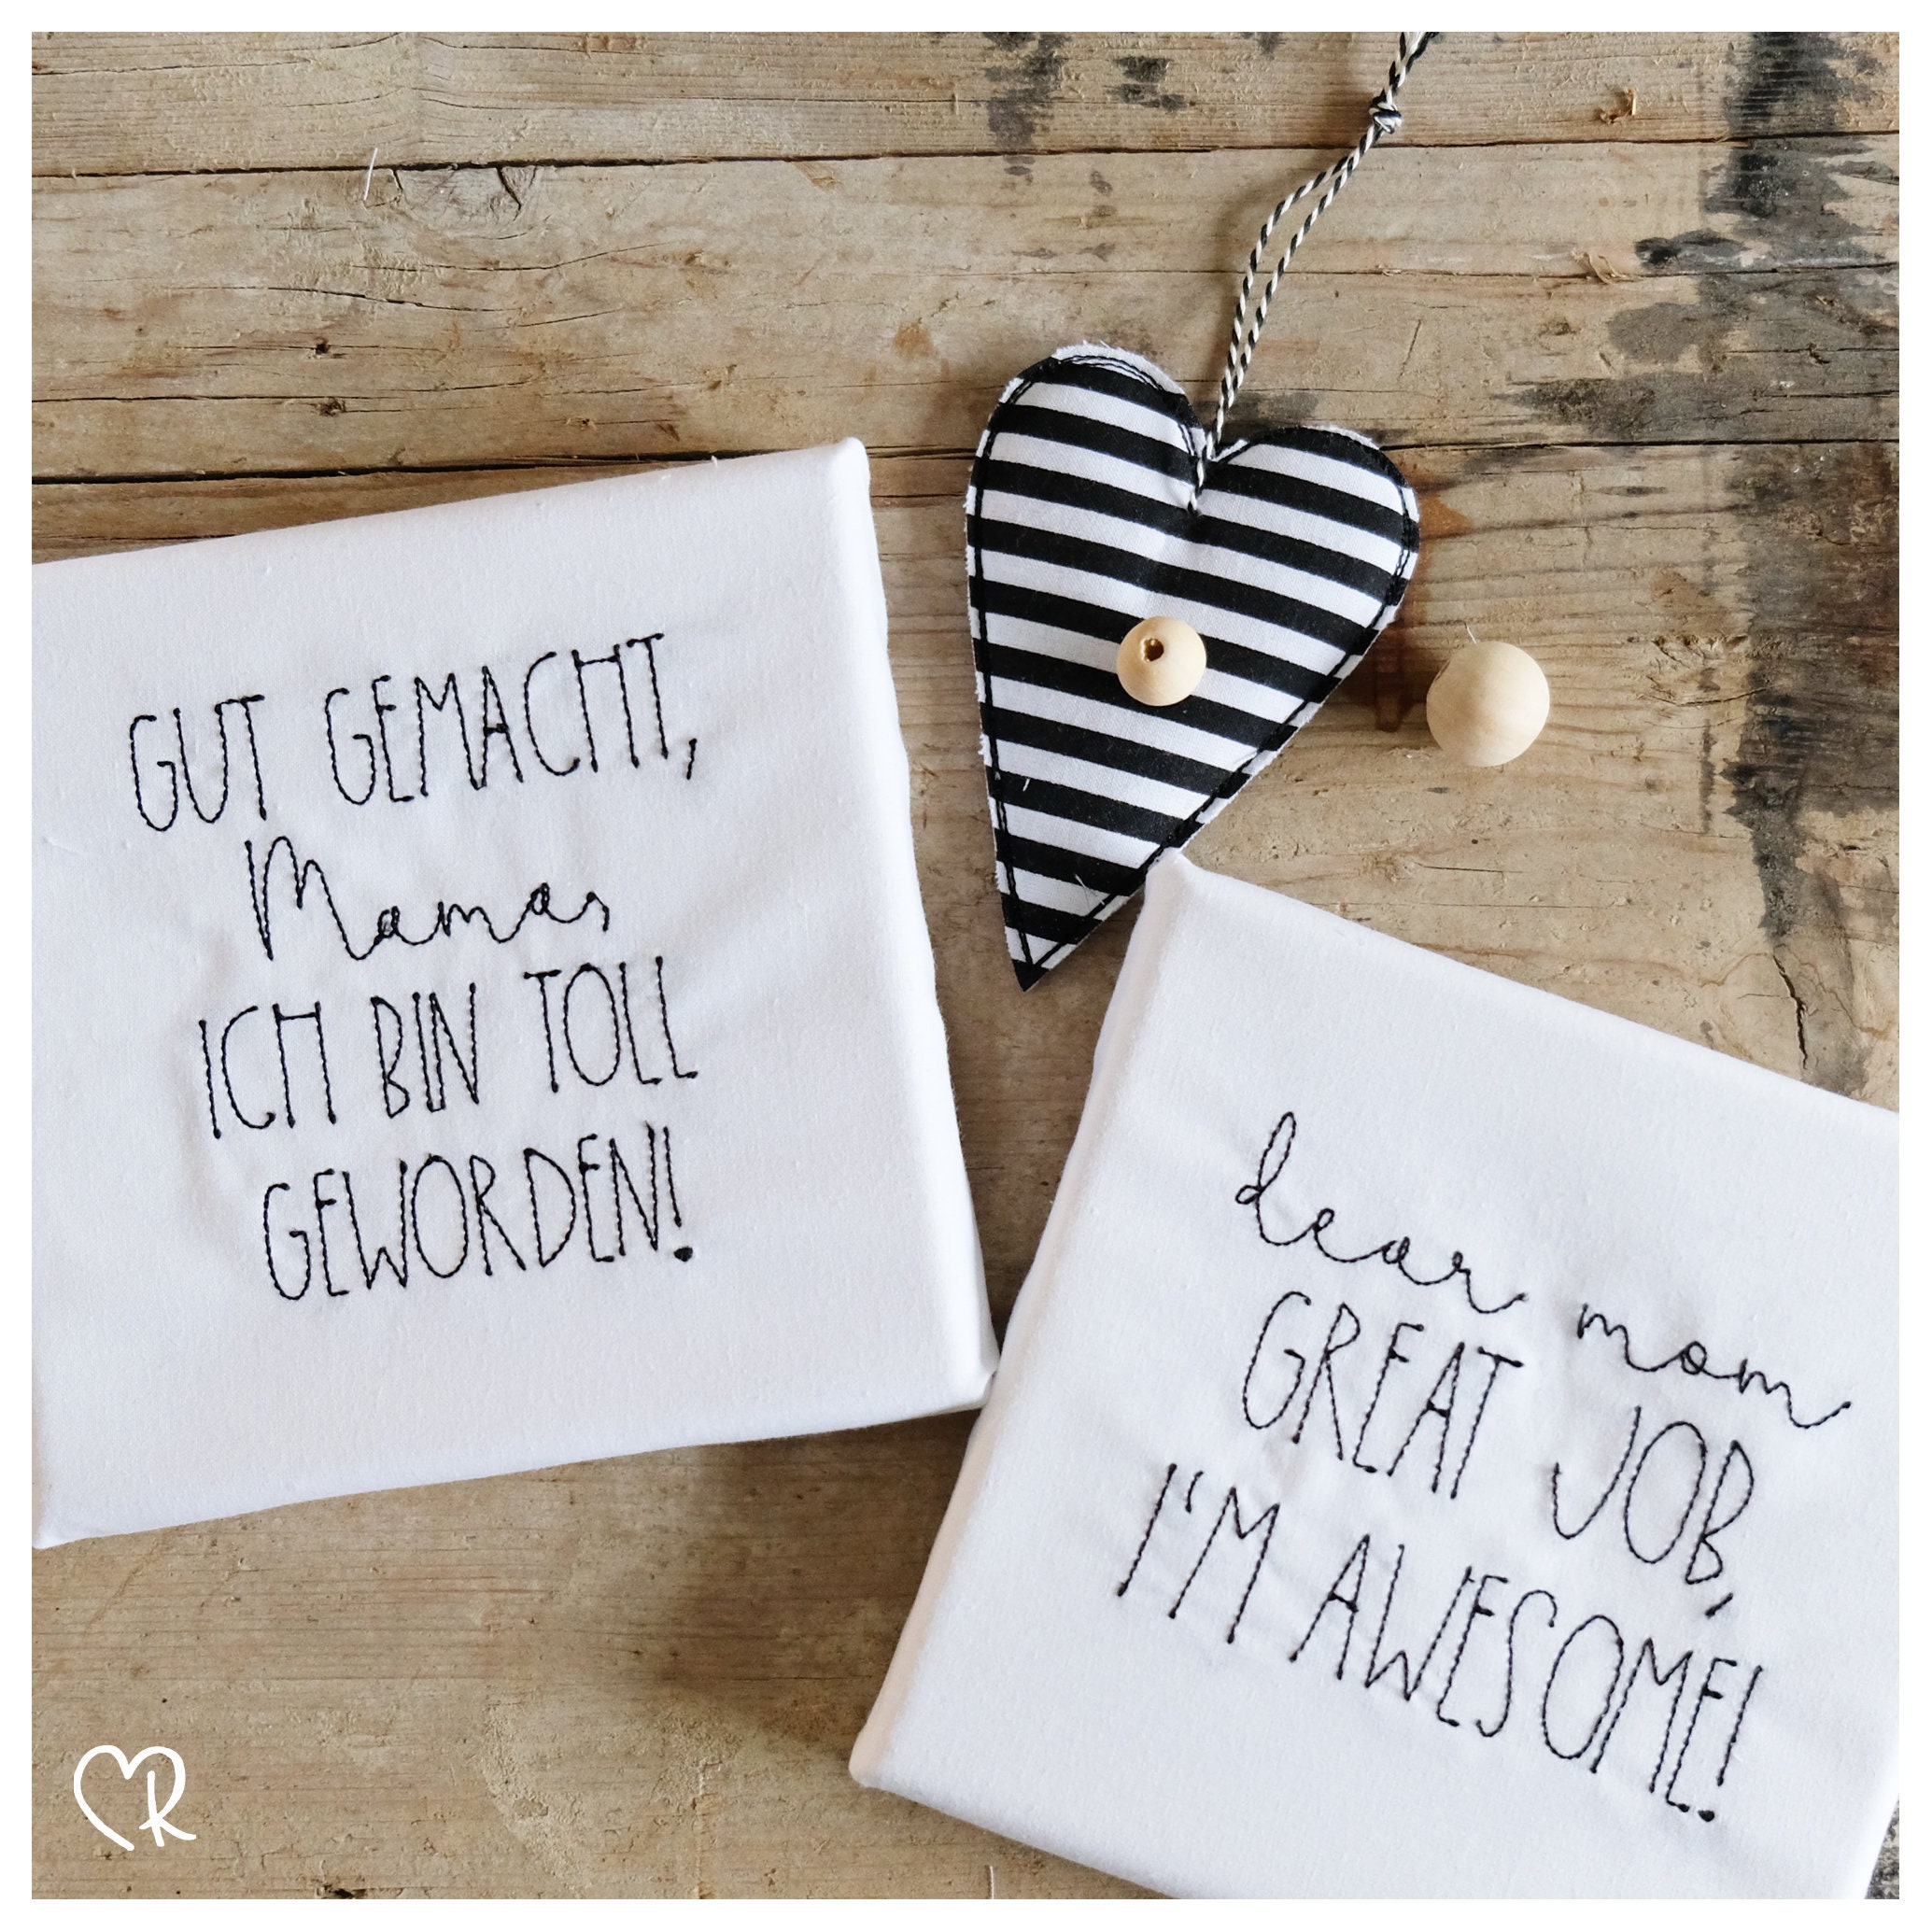 GUT GEMACHT,
Mama,
ICH BIN TOLL
GEWORDEN!
dear mom
GREAT JOB,
I'M AWESOME!